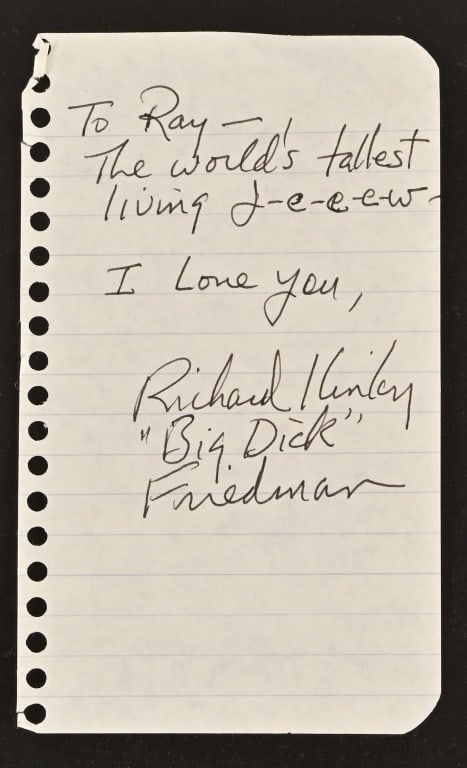 To Ray —
The world's tallest
living J-e-e-e-w-
I Love you,
Richard Kinky
"Big Dick"
Friedman